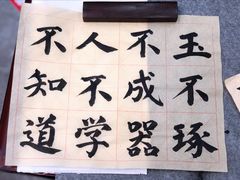 玉不琢
不成器
人不学
不知道